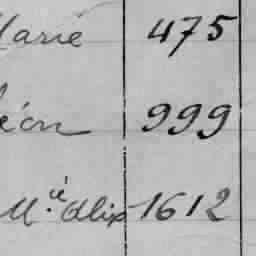 Marie 475
Léon 999
M.ie Alix 1612